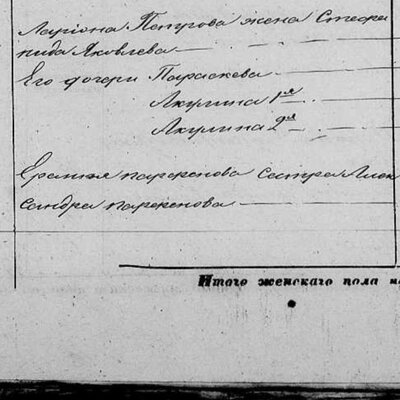 Лариона Петрова жена Степа
нида Яковлева
Его дочери Параскева
Акулина 1я
Акулина 2я
Ермила Парфенова сестра Алек
сандра Парфенова
Итого женскаго пола н